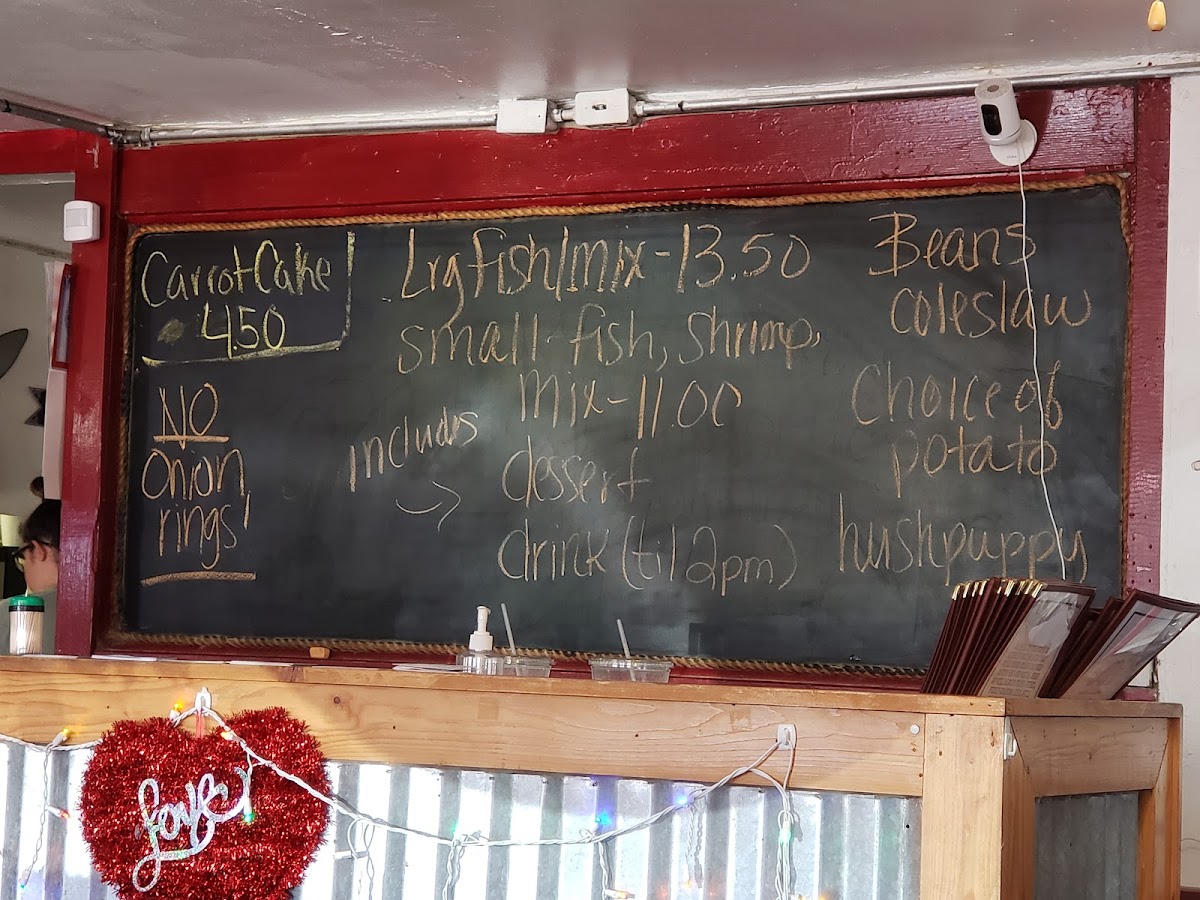 Carrot Cake
4.50
NO
Onion
rings!
Lrg fish/mix - 13.50
small - fish, shrimp,
mix - 11.00
includes
→ dessert
drink (til 2pm)
Beans
coleslaw
Choice of
potato
hushpuppy
Love